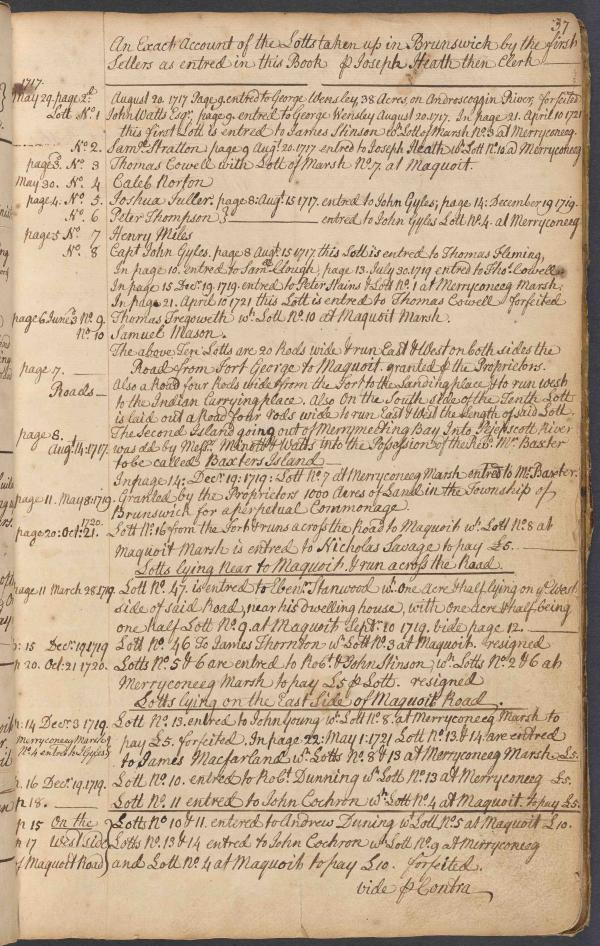 37
An Exact Account of the Lotts taken up in Brunswick by the first
Setlers as entred in this Book ⅌ Joseph Heath then Clerk
1717.
May 29. page 2d August 20. 1717 Page 9. entred to George Wensley, 38 Acres, on Androscoggin River, forfeited
Lott No. 1 John Watts Esqr. page 9. entred to George Wensley August 20. 1717. In page 21. April 10 1721
this first Lott is entred to James Stinson wth. Lott of Marsh No. 3 at Merryconeeg.
No. 2. Saml. Stratton page 9 Augt. 20. 1717 entred to Joseph Heath wth. Lott No. 10 at Merryconeeg
page 3. No. 3 Thomas Cowell with Lott of Marsh No. 7. at Maquoit.
May 30. No. 4 Caleb Norton
page 4. No. 5. Joshua Tuller. page 8: Augt. 15 1717. entred to John Gyles; page 14: December 19 1719.
No. 6 Peter Thompson } entred to John Gyles Lott No. 4. at Merryconeeg
page 5 No. 7 Henry Miles
No. 8 Capt John Gyles. page 8 Augt. 15 1717 this Lott is entred to Thomas Fleming,
In page 10. entred to Saml. Clough, page 13. July 30. 1719 entred to Thos. Cowell
In page 15 Decr. 19. 1719. entred to Peter Hains & Lott No. 1 at Merryconeeg Marsh.
In page 21. April 10 1721 this Lott is entred to Thomas Cowell forfeited
page 6 June 3 No. 9 Thomas Tregoweth wth. Lott No. 10 at Maquoit Marsh.
No. 10 Samuel Mason.
The above Ten Lotts are 20 Rods wide & run East & West on both sides the
page 7. Road from Fort George to Maquoit. granted ⅌ the Propriors.
Also a Road four Rods wide from the Fort to the Landing place & to run west
Roads to the Indian Carrying place. Also On the South side of the Tenth Lott
is laid out a Road four rods wide to run East & West the Length of said Lott.
page 8. The Second Island going out of Merrymeeting Bay Into Pejepscott River
Augt. 14: 1717. was dd by Messrs. Minott & Watts into the Possession of the Revd. Mr. Baxter
to be called Baxters Island
In page 14: Decr. 19: 1719: Lott No. 7 at Merryconeeg Marsh entred to Mr. Baxter.
page 11. May 8: 1719. Granted by the Proprietors 1000 Acres of Land in the Township of
Brunswick for a perpetual Commonage.
page 20: Oct: 21. 1720. Lott No. 16 from the Fort & runs across the Road to Maquoit wth. Lott No. 8 at
Maquoit Marsh is entred to Nicholas Savage to pay £5.
Lotts lying near to Maquoit. & run across the Road
page 11 March 28 1719. Lott No. 47. is entred to Ebenr. Stanwood wth. One Acre & half lying on ye West
side of said Road, near his dwelling house, with one acre & half being
one half Lott No. 9. at Maquoit Septr. 10 1719. vide page 12.
p: 15 Decr. 19 1719 Lott No. 46 To James Thornton wth Lott No. 3 at Maquoit. resigned
p 20. Oct: 21 1720. Lotts No. 5 & 6 are entred to Robt. & John Stinson, wth: Lotts No. 2 & 6 at
Merryconeeg Marsh to pay £5 ⅌ Lott. resigned
Lotts lying on the East Side of Maquoit Road.
p: 14 Decr. 3 1719. Lott No. 13. entred to John Young wth Lott No. 8. at Merryconeeg Marsh to
Merryconeeg Marsh
No. 4 entred to J Gyles pay £5. forfeited. In page 22: May 1: 1721 Lott No. 13. & 14. are entred
to James Macfarland wth: Lotts No. 8 & 13 at Merryconeeg Marsh £5.
p. 16 Decr. 19. 1719. Lott No. 10. entred to Robt. Dunning wth Lott No. 13 at Merryconeeg £5.
p 18. Lott No. 11 entred to John Cochron wth Lott No. 4 at Maquoit. to pay £5.
p 15 On the Lotts No 10 & 11. entered to Andrew Duning wth Lott No. 5 at Maquoit £10.
p 17 West side Lotts No. 13 & 14 entred to John Cochron wth Lott No. 9 at Merryconeeg
of Maquoit Road and Lott No. 4 at Maquoit to pay £10. forfeited.
vide ⅌ Contra